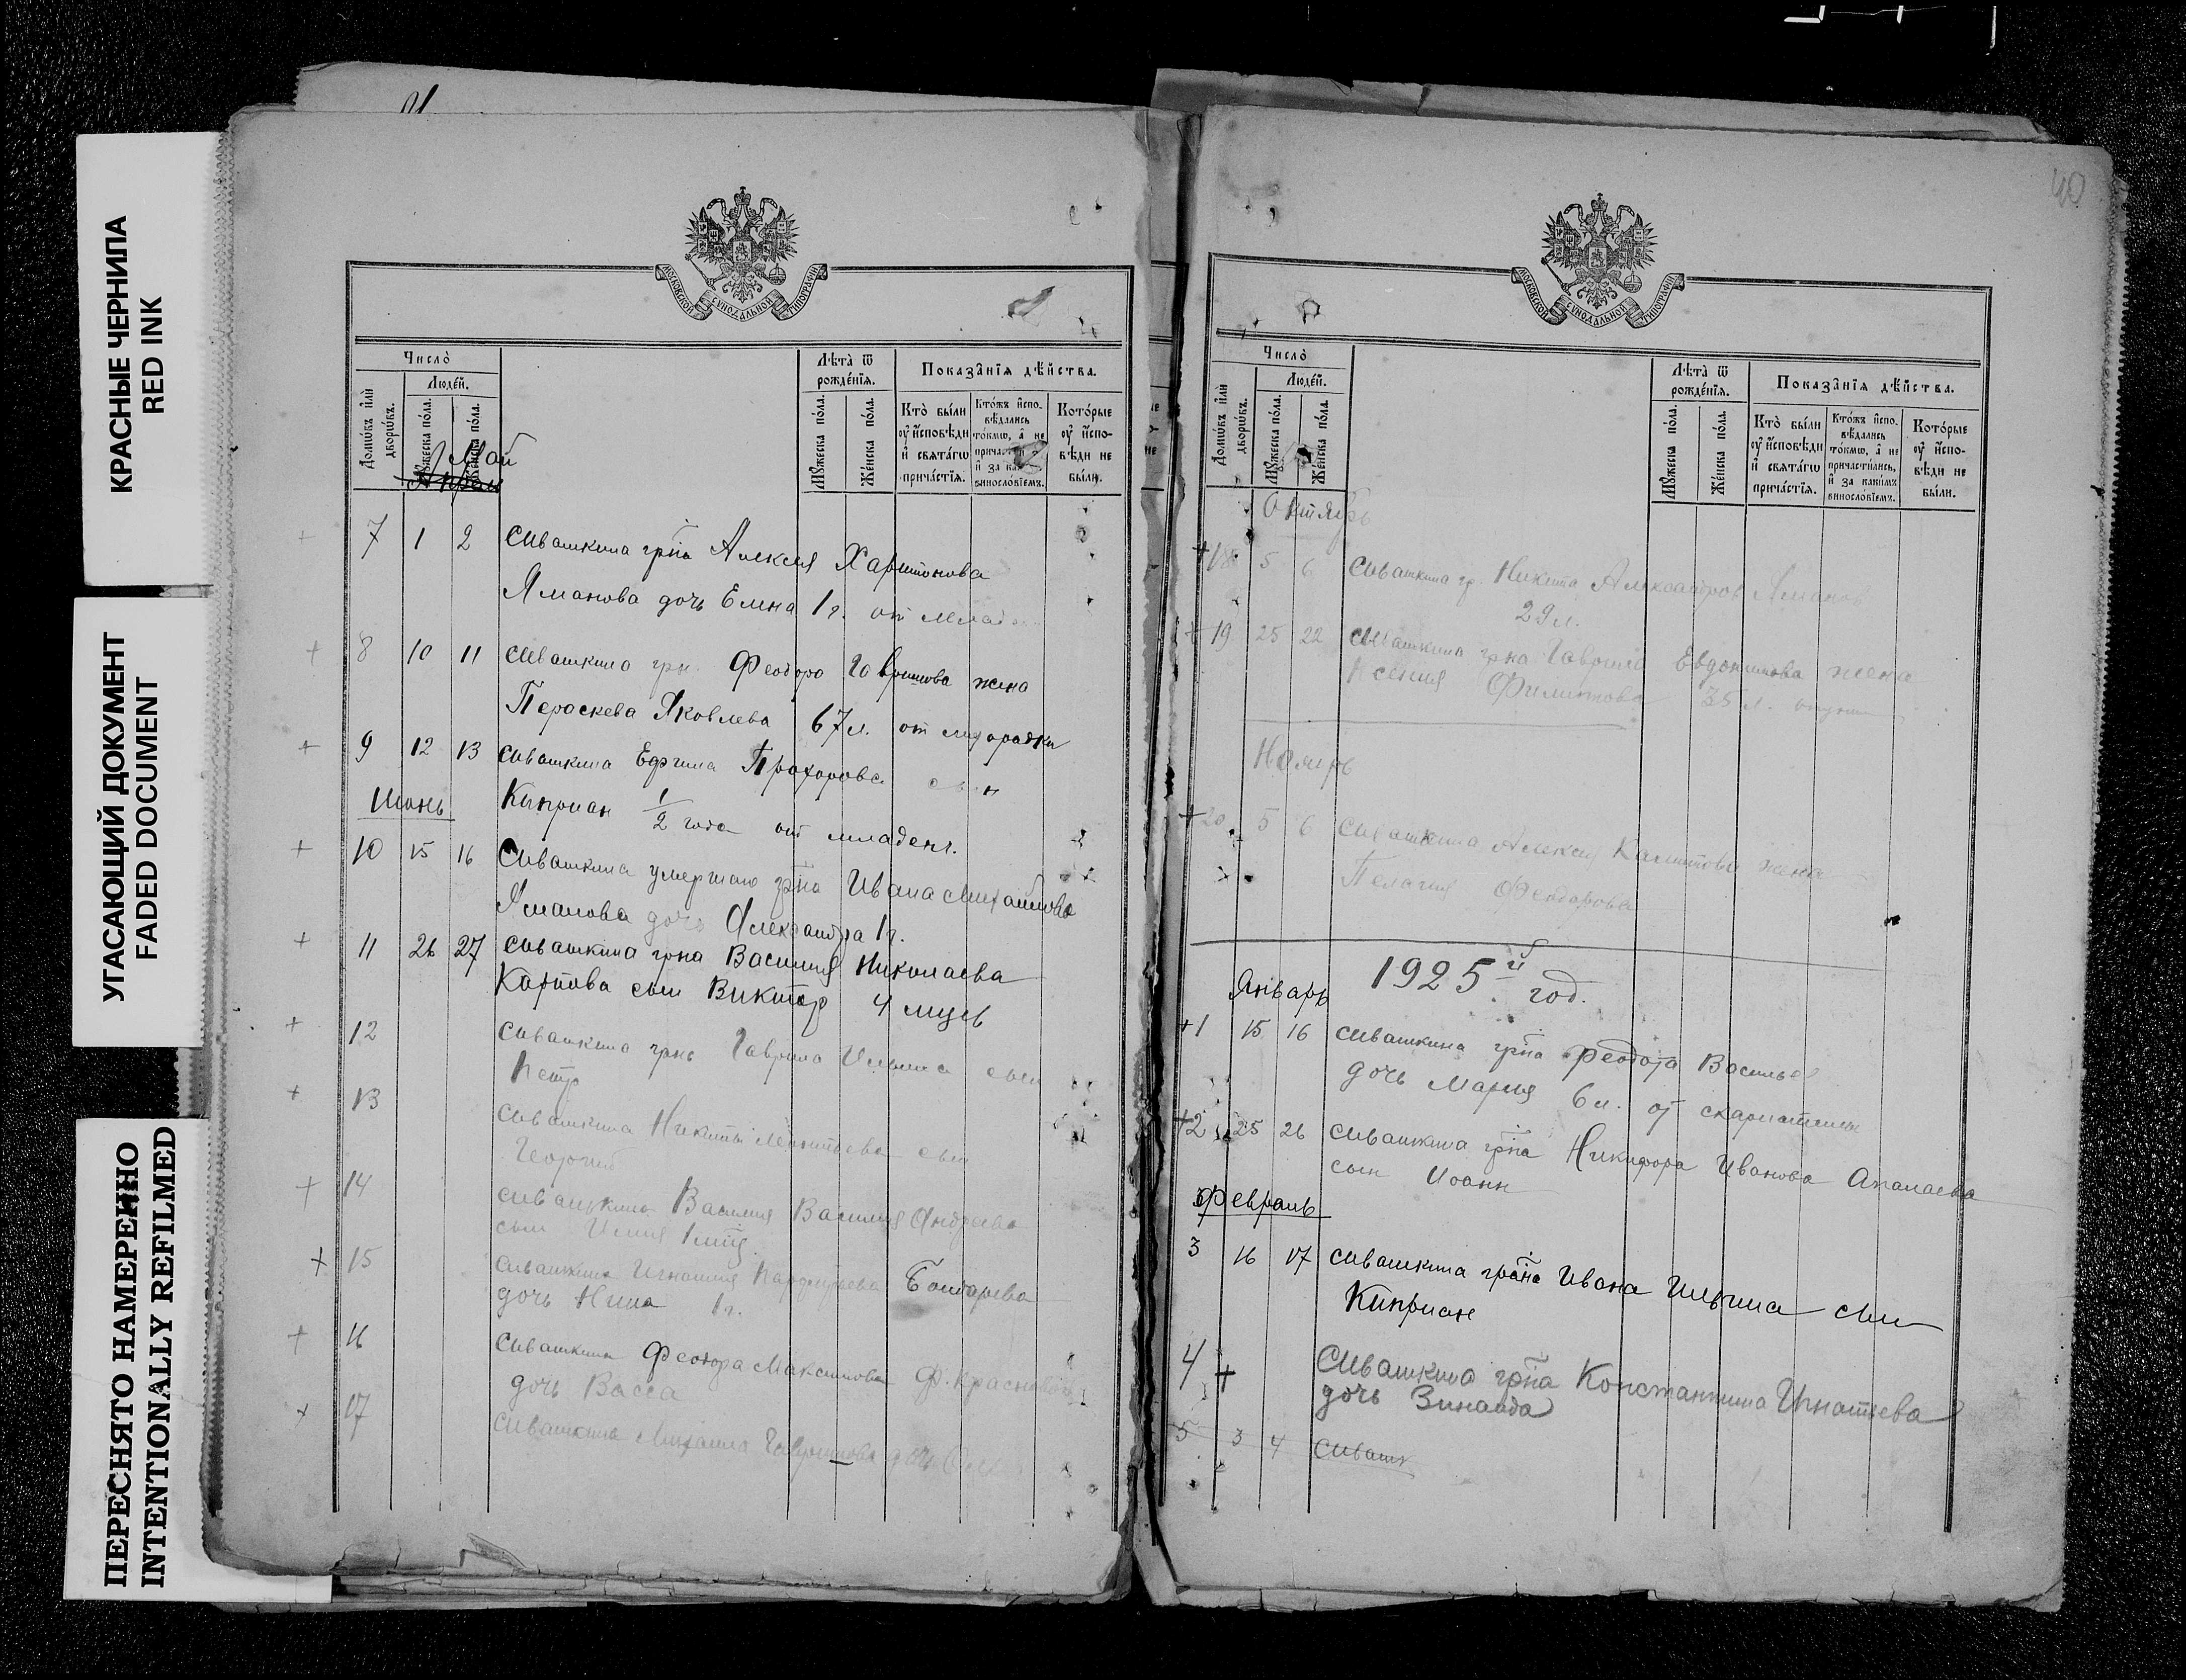 КРАСНЫЕ ЧЕРНИЛА
RED INK
УГАСАЮЩИЙ ДОКУМЕНТ
FADED DOCUMENT
ПЕРЕСНЯТО НАМЕРЕННО
INTENTIONALLY REFILMED
МОСКОВСКОЙ СУНОДАЛЬНОЙ ТИПОГРАФІИ
Число
Людей.
Лѣта ѿ рожденія.
Показанія дѣйства.
Домѡвъ или дворѡвъ.
Мꙋжеска пола.
Женска пола.
Мꙋжеска пола.
Женска пола.
Кто были ᲂу исповѣди и свѧтагѡ причастія.
Ктожъ исповѣдались токмѡ, а не причастились, и за какимъ винословіемъ.
Которые ᲂу исповѣди не были.
Май
Апрель
7 1 2 Сивашкина грна Алексея Харитонова
Яманова дочь Елена 1 г. от млад
8 10 11 Сивашкина грн. Феодора Гаврилова жена
Пераскева Яковлева 67 л. от лихорадки
9 12 13 Сивашкина Ефима Прохорова сын
Июнь Киприан 1/2 года от младенч.
10 15 16 Сивашкина умершаго грна Ивана Михайлова
Яманова дочь Александра 1 г.
11 26 27 Сивашкина грна Василия Николаева
Карпова сын Виктор 4 мцев
12 Сивашкина грна Гаврила Ильина сын
Петр
13 Сивашкина Никиты сын
Георгий
14 Сивашкина Василия Василия Андреева
сын Илия 1
15 Сивашкина Игнатия Бондарева
дочь Нина 1 г.
16 Сивашкина Феодора Максимова Ф. Краснова
дочь Васса
17 Сивашкина Михаила Гаврилова дочь
40
МОСКОВСКОЙ СУНОДАЛЬНОЙ ТИПОГРАФІИ
Число
Людей.
Лѣта ѿ рожденія.
Показанія дѣйства.
Домѡвъ или дворѡвъ.
Мꙋжеска пола.
Женска пола.
Мꙋжеска пола.
Женска пола.
Кто были ᲂу исповѣди и свѧтагѡ причастія.
Ктожъ исповѣдались токмѡ, а не причастились, и за какимъ винословіемъ.
Которые ᲂу исповѣди не были.
Октябрь
+18 5 6 Сивашкина гр. Никита Александров Яманов
29 л.
+19 25 22 Сивашкина грна Гаврила Евдокимова жена
Ксения Филиппова 35 л.
Ноябрь
+20 5 6 Сивашкина Алексея жена
Пелагия Феодорова
1925й год.
Январь
+1 15 16 Сивашкина грна Феодота Василье
дочь Мария 6 л. от скарлатины
+2 25 26 Сивашкина грна Никифора Иванова Апалаева
сын Иоанн
Февраль
3 16 17 Сивашкина грана Ивана Ильина сын
Киприан
4 + Сивашкина грна Константина Игнатьева
дочь Зинаида
5 3 4 Сиваш